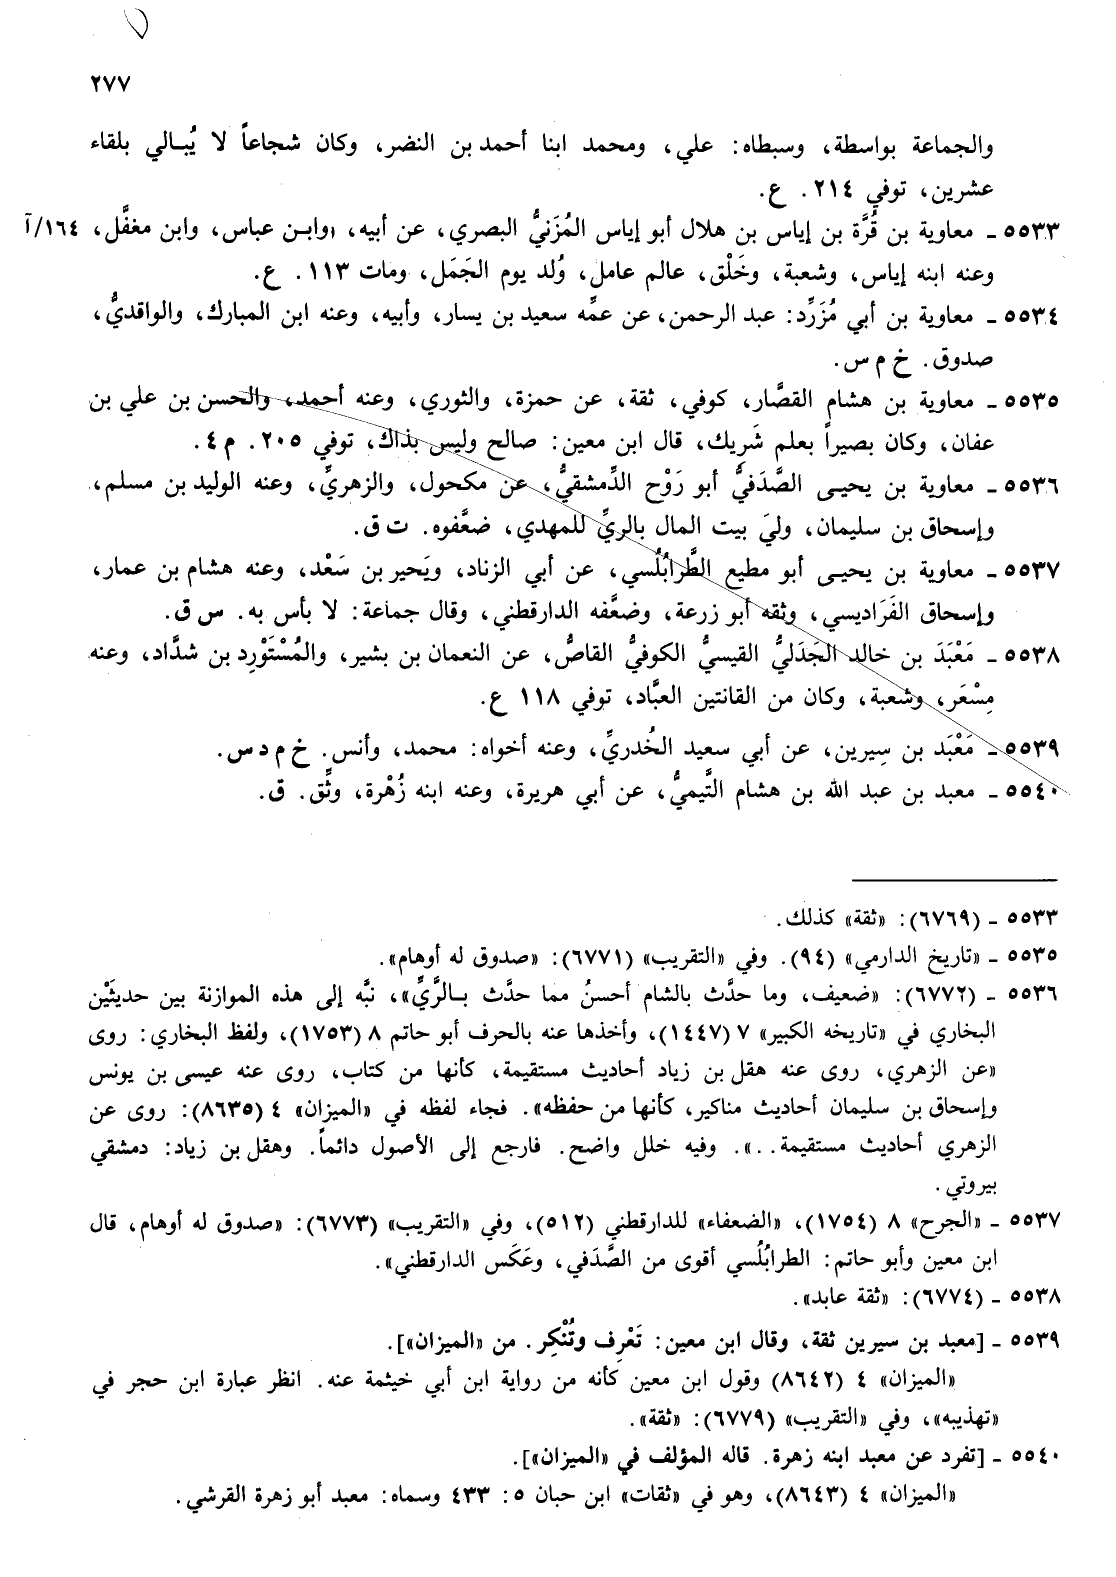 ٢٧٧
والجماعة بواسطة، وسبطاه: علي، ومحمد ابنا أحمد بن النضر، وكان شجاعاً لا يُبـالي بلقاء
عشرين، توفي ٢١٤. ع.
٥٥٣٣ ـ معاوية بن قُرَّة بن إياس بن هلال أبو إياس المُزَنيُّ البصري، عن أبيه، وابـن عباس، وابن مغفَّل، ١٦٤/آ
وعنه ابنه إياس، وشعبة، وخَلْق، عالم عامل، وُلد يوم الجَمَل، ومات ١١٣. ع.
٥٥٣٤ ـ معاوية بن أبي مُزَرِّد: عبد الرحمن، عن عمِّه سعيد بن يسار، وأبيه، وعنه ابن المبارك، والواقديُّ،
صدوق. خ م س.
٥٥٣٥ ـ معاوية بن هشام القصَّار، كوفي، ثقة، عن حمزة، والثوري، وعنه أحمد، والحسن بن علي بن
عفان، وكان بصيراً بعلم شَرِيك، قال ابن معين: صالح وليس بذاك، توفي ٢٠٥. م ٤.
٥٥٣٦ ـ معاوية بن يحيـى الصَّدَفيُّ أبو رَوْح الدِّمشقيُّ، عن مكحول، والزهريِّ، وعنه الوليد بن مسلم،
وإسحاق بن سليمان، وليَ بيت المال بالريِّ للمهدي، ضعَّفوه. ت ق.
٥٥٣٧ ـ معاوية بن يحيـى أبو مطيع الطَّرابُلُسي، عن أبي الزناد، ويَحير بن سَعْد، وعنه هشام بن عمار،
وإسحاق الفَرَاديسي، وثقه أبو زرعة، وضعَّفه الدارقطني، وقال جماعة: لا بأس به. س ق.
٥٥٣٨ ـ مَعْبَدَ بن خالد الجَدَليُّ القيسيُّ الكوفيُّ القاصُّ، عن النعمان بن بشير، والمُسْتَوْرِد بن شدَّاد، وعنه
مِسْعَر، وشعبة، وكان من القانتين العبَّاد، توفي ١١٨ ع.
٥٥٣٩ ـ مَعْبَد بن سِيرين، عن أبي سعيد الخُدريِّ، وعنه أخواه: محمد، وأنس. خ م د س.
٥٥٤٠ ـ معبد بن عبد الله بن هشام التَّيميُّ، عن أبي هريرة، وعنه ابنه زُهْرة، وثِّق. ق.
٥٥٣٣ ـ (٦٧٦٩): «ثقة» كذلك.
٥٥٣٥ ـ «تاريخ الدارمي» (٩٤). وفي «التقريب» (٦٧٧١): «صدوق له أوهام».
٥٥٣٦ ـ (٦٧٧٢): «ضعيف، وما حدَّث بالشام أحسنُ مما حدَّث بـالرَّيِّ»، نبَّه إلى هذه الموازنة بين حديثَيْن
البخاري في «تاريخه الكبير» ٧ (١٤٤٧)، وأخذها عنه بالحرف أبو حاتم ٨ (١٧٥٣)، ولفظ البخاري: روى
«عن الزهري، روى عنه هقل بن زياد أحاديث مستقيمة، كأنها من كتاب، روى عنه عيسى بن يونس
وإسحاق بن سليمان أحاديث مناكير، كأنها من حفظه». فجاء لفظه في «الميزان» ٤ (٨٦٣٥): روى عن
الزهري أحاديث مستقيمة..». وفيه خلل واضح. فارجع إلى الأصول دائماً. وهقل بن زياد: دمشقي
بيروتي.
٥٥٣٧ ـ «الجرح» ٨ (١٧٥٤)، «الضعفاء» للدارقطني (٥١٢)، وفي «التقريب» (٦٧٧٣): «صدوق له أوهام، قال
ابن معين وأبو حاتم: الطرابُلُسي أقوى من الصَّدَفي، وعَكَس الدارقطني».
٥٥٣٨ ـ (٦٧٧٤): «ثقة عابد».
٥٥٣٩ ـ [معبد بن سيرين ثقة، وقال ابن معين: تَعْرِف وتُنْكِر. من «الميزان»].
«الميزان» ٤ (٨٦٤٢) وقول ابن معين كأنه من رواية ابن أبي خيثمة عنه. انظر عبارة ابن حجر في
«تهذيبه»، وفي «التقريب» (٦٧٧٩): «ثقة».
٥٥٤٠ ـ [تفرد عن معبد ابنه زهرة. قاله المؤلف في «الميزان»].
«الميزان» ٤ (٨٦٤٣)، وهو في «ثقات» ابن حبان ٥: ٤٣٣ وسماه: معبد أبو زهرة القرشي.